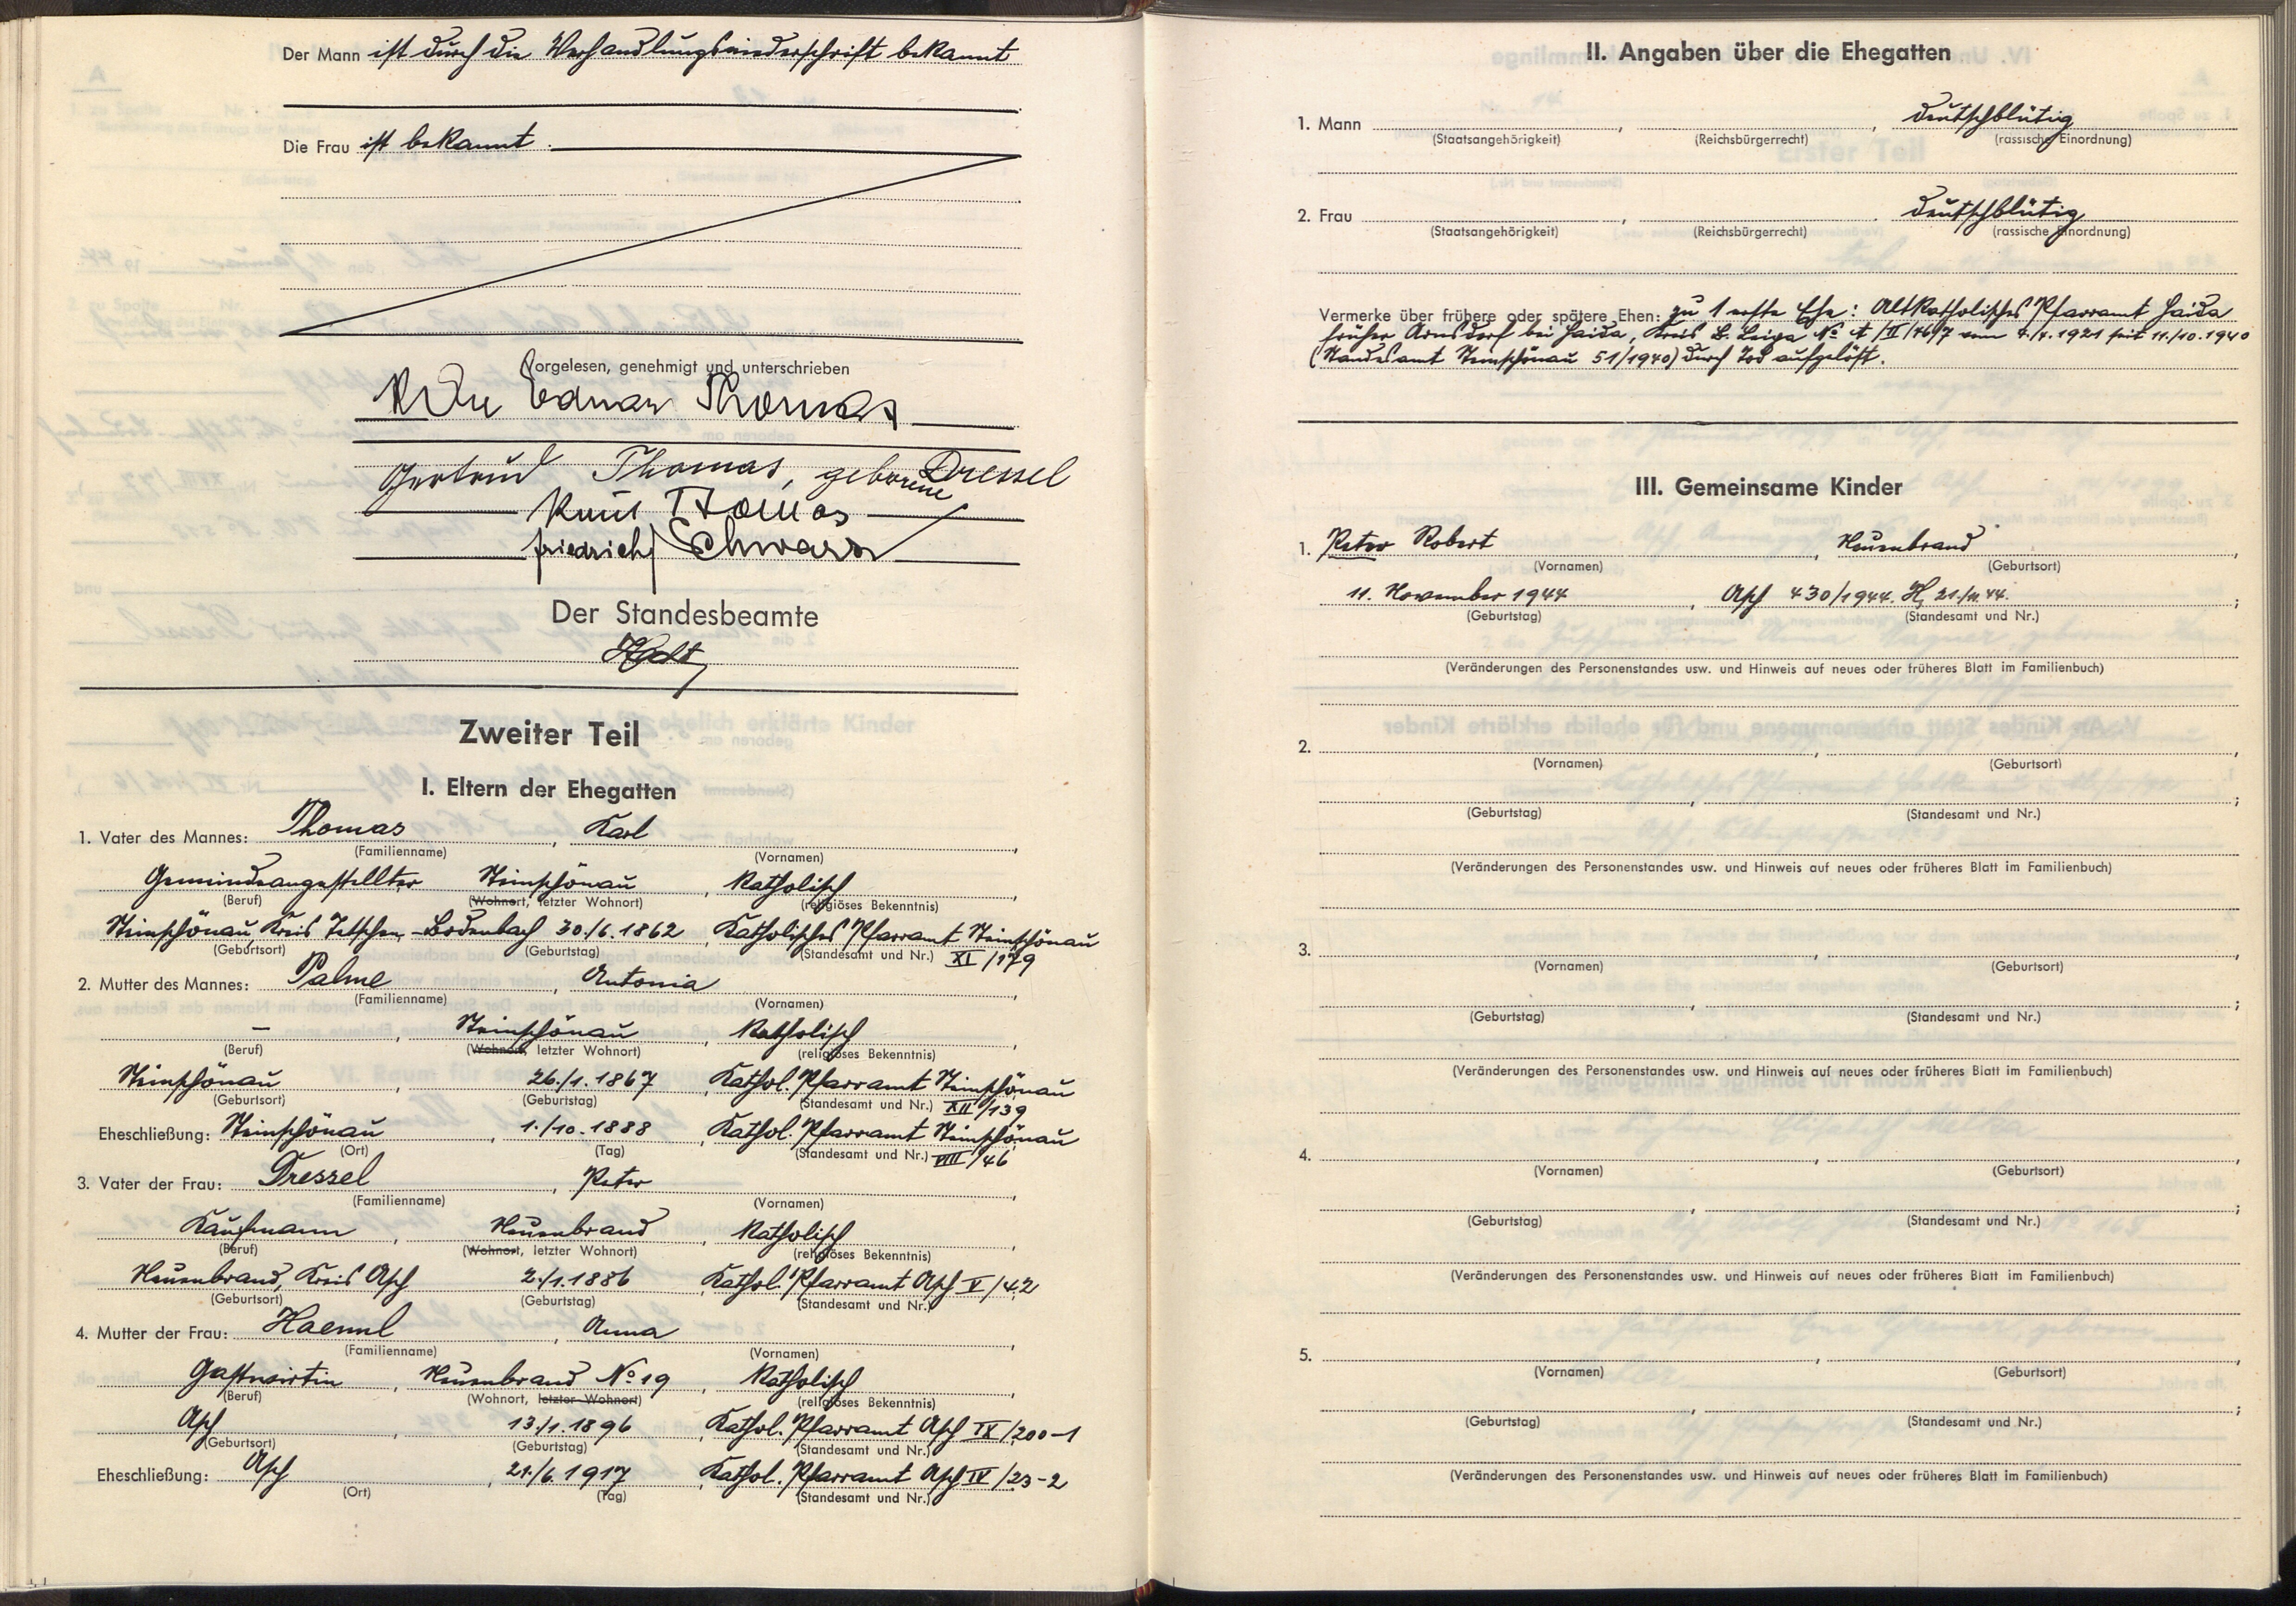 Der Mann ist durch die Verhandlungsniederschrift bekannt
Die Frau ist bekannt.
Vorgelesen, genehmigt und unterschrieben
Eduar Thomas
Gertrud Thomas, geborene Dressel
Thomas
friedrich Schwarz
Der Standesbeamte
Zweiter Teil
I. Eltern der Ehegatten
1. Vater des Mannes: Thomas, Karl,
(Familienname) (Vornamen)
Gemeindeangestellter Steinschönau, katholisch,
(Beruf) (Wohnort, letzter Wohnort) (religiöses Bekenntnis)
Steinschönau, Kreis Tetschen-Bodenbach 30./6.1862, Katholisches Pfarramt Steinschönau
(Geburtsort) (Geburtstag) (Standesamt und Nr.) XI/179
2. Mutter des Mannes: Palme, Antonia,
(Familienname) (Vornamen)
–, Steinschönau, katholisch,
(Beruf) (Wohnort, letzter Wohnort) (religiöses Bekenntnis)
Steinschönau, 26./1.1867, Kathol. Pfarramt Steinschönau
(Geburtsort) (Geburtstag) (Standesamt und Nr.) XII/139
Eheschließung: Steinschönau, 1./10.1888, Kathol. Pfarramt Steinschönau
(Ort) (Tag) (Standesamt und Nr.) VIII/46
3. Vater der Frau: Dressel, Peter,
(Familienname) (Vornamen)
Kaufmann, Neuenbrand, katholisch,
(Beruf) (Wohnort, letzter Wohnort) (religiöses Bekenntnis)
Neuenbrand, Kreis Asch 2./1.1886, Kathol. Pfarramt Asch V/42
(Geburtsort) (Geburtstag) (Standesamt und Nr.)
4. Mutter der Frau: Haennl, Anna,
(Familienname) (Vornamen)
Gastwirtin, Neuenbrand No 19, katholisch,
(Beruf) (Wohnort, letzter Wohnort) (religiöses Bekenntnis)
Asch, 13./1.1896, Kathol. Pfarramt Asch IX/200-1
(Geburtsort) (Geburtstag) (Standesamt und Nr.)
Eheschließung: Asch, 21./6.1917, Kathol. Pfarramt Asch IV/23-2
(Ort) (Tag) (Standesamt und Nr.)
II. Angaben über die Ehegatten
1. Mann , , deutschblütig
(Staatsangehörigkeit) (Reichsbürgerrecht) (rassische Einordnung)
2. Frau , . deutschblütig
(Staatsangehörigkeit) (Reichsbürgerrecht) (rassische Einordnung)
Vermerke über frühere oder spätere Ehen: zu 1 erste Ehe: Altkatholisches Pfarramt Haida
früher Arnsdorf bei Haida, Kreis B. Leipa No vom 1921 seit 11./10.1940
(Standesamt Steinschönau 51/1940) durch Tod aufgelöst.
III. Gemeinsame Kinder
1. Peter Robert, Neuenbrand,
(Vornamen) (Geburtsort)
11. November 1944, Asch 430/1944. 21./11.44.;
(Geburtstag) (Standesamt und Nr.)
(Veränderungen des Personenstandes usw. und Hinweis auf neues oder früheres Blatt im Familienbuch)
2. , ,
(Vornamen) (Geburtsort)
, ;
(Geburtstag) (Standesamt und Nr.)
(Veränderungen des Personenstandes usw. und Hinweis auf neues oder früheres Blatt im Familienbuch)
3. , ,
(Vornamen) (Geburtsort)
, ;
(Geburtstag) (Standesamt und Nr.)
(Veränderungen des Personenstandes usw. und Hinweis auf neues oder früheres Blatt im Familienbuch)
4. , ,
(Vornamen) (Geburtsort)
, ;
(Geburtstag) (Standesamt und Nr.)
(Veränderungen des Personenstandes usw. und Hinweis auf neues oder früheres Blatt im Familienbuch)
5. , ,
(Vornamen) (Geburtsort)
, ;
(Geburtstag) (Standesamt und Nr.)
(Veränderungen des Personenstandes usw. und Hinweis auf neues oder früheres Blatt im Familienbuch)